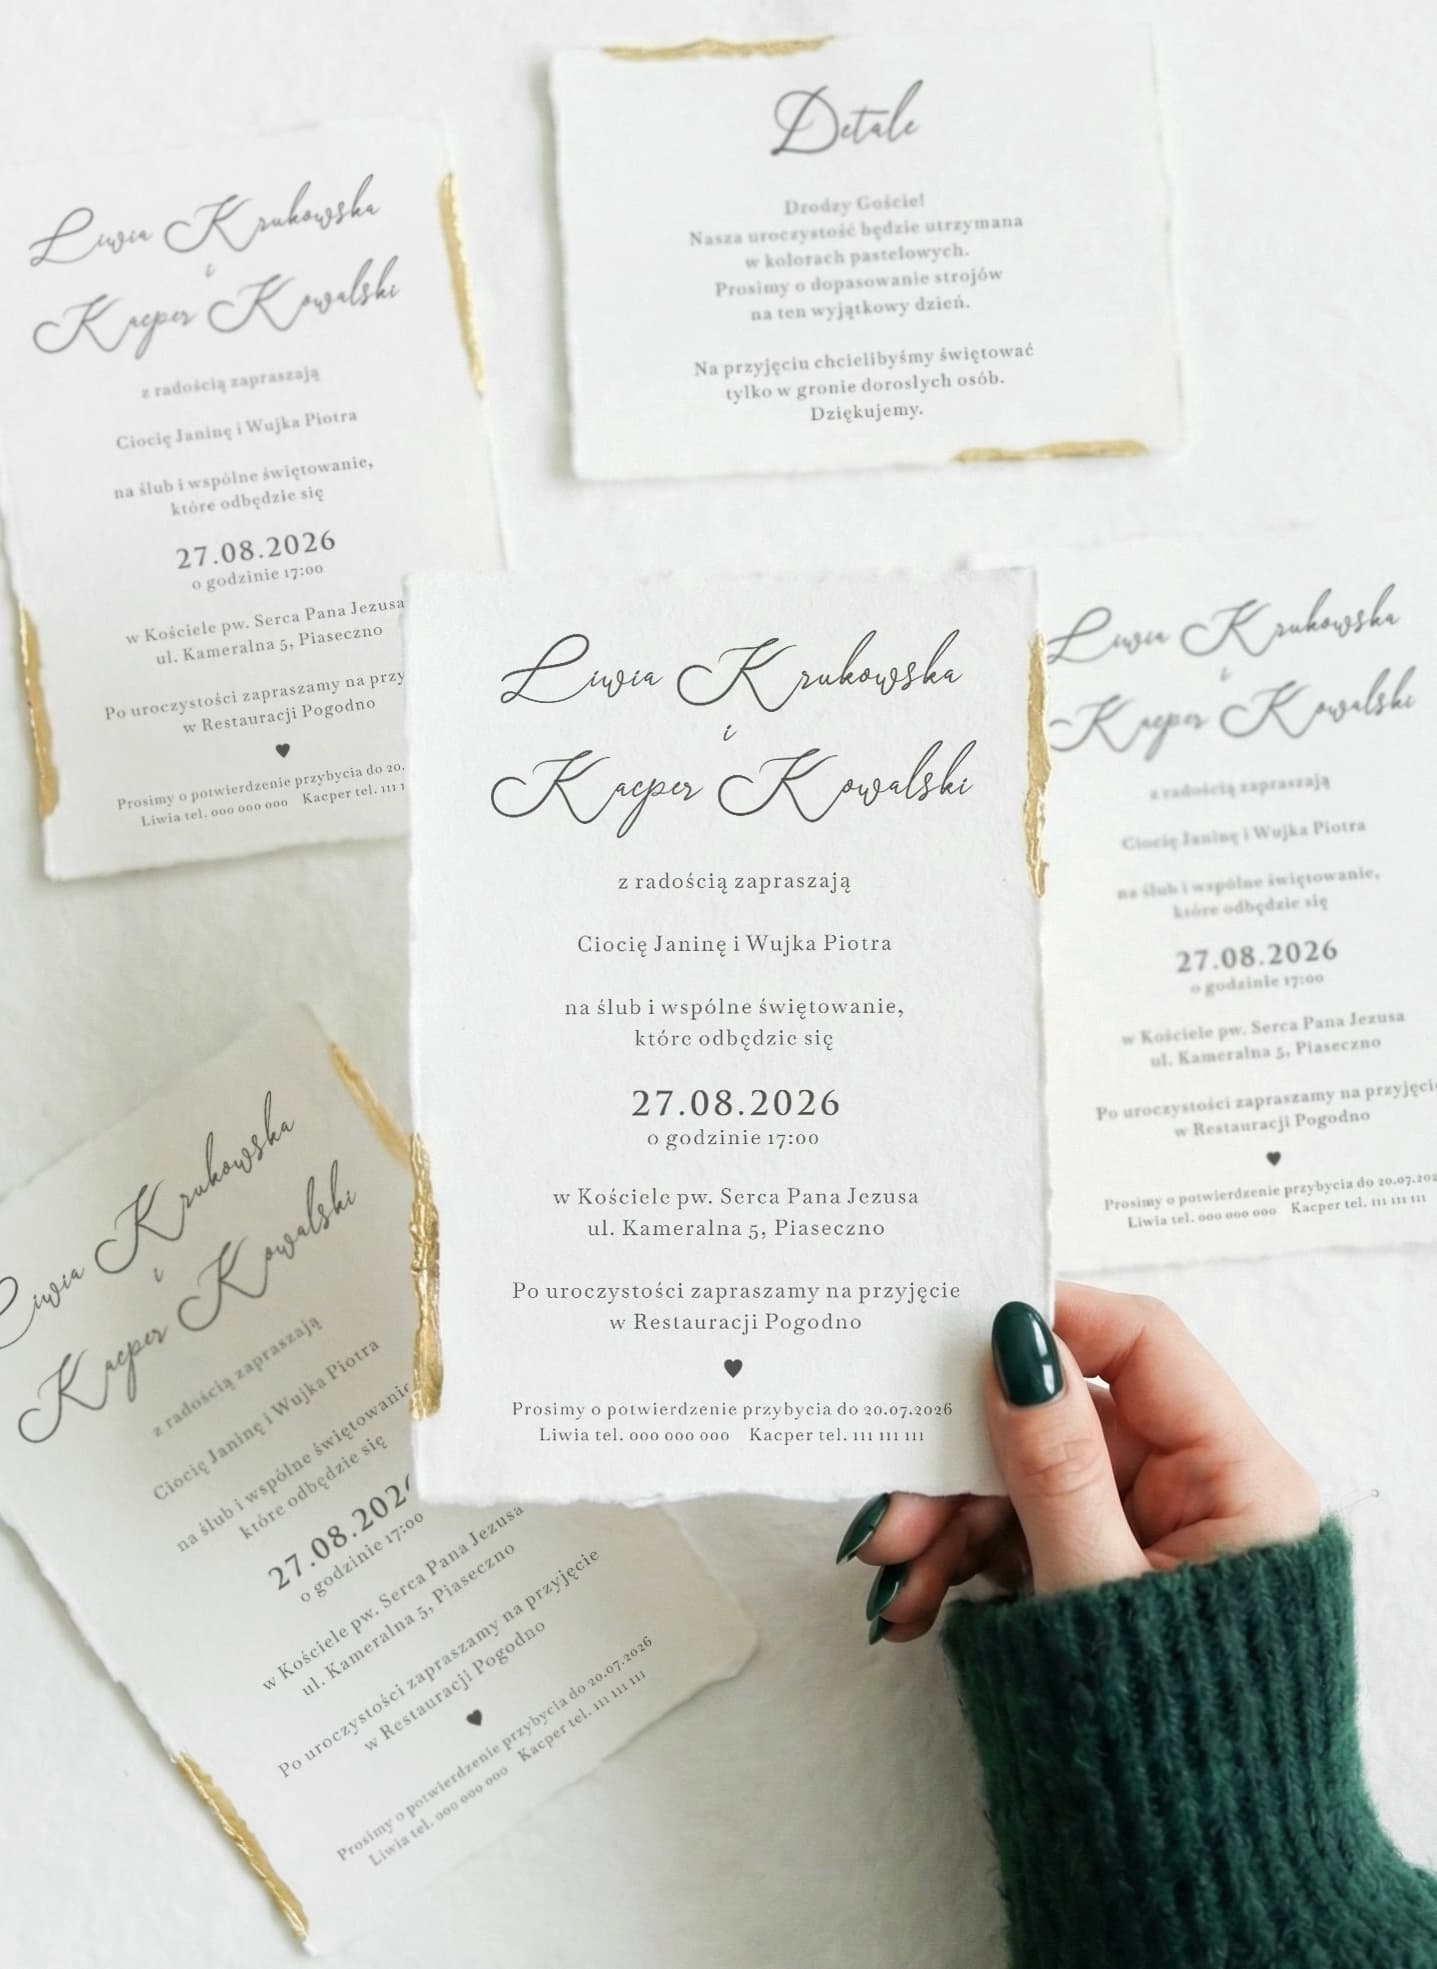 Liwia Krukowska
i
Kacper Kowalski
z radością zapraszają
Ciocię Janinę i Wujka Piotra
na ślub i wspólne świętowanie,
które odbędzie się
27.08.2026
o godzinie 17:00
w Kościele pw. Serca Pana Jezusa
ul. Kameralna 5, Piaseczno
Po uroczystości zapraszamy na przy
w Restauracji Pogodno
Prosimy o potwierdzenie przybycia do 20.
Liwia tel. 000 000 000 Kacper tel. 111 1
Detale
Drodzy Goście!
Nasza uroczystość będzie utrzymana
w kolorach pastelowych.
Prosimy o dopasowanie strojów
na ten wyjątkowy dzień.
Na przyjęciu chcielibyśmy świętować
tylko w gronie dorosłych osób.
Dziękujemy.
Liwia Krukowska
i
Kacper Kowalski
z radością zapraszają
Ciocię Janinę i Wujka Piotra
na ślub i wspólne świętowanie,
które odbędzie się
27.08.2026
o godzinie 17:00
w Kościele pw. Serca Pana Jezusa
ul. Kameralna 5, Piaseczno
Po uroczystości zapraszamy na przyjęcie
w Restauracji Pogodno
Prosimy o potwierdzenie przybycia do 20.07.2026
Liwia tel. 000 000 000 Kacper tel. 111 111 111
Liwia Krukowska
i
Kacper Kowalski
z radością zapraszają
Ciocię Janinę i Wujka Piotra
na ślub i wspólne świętowanie,
które odbędzie się
27.08.2026
o godzinie 17:00
w Kościele pw. Serca Pana Jezusa
ul. Kameralna 5, Piaseczno
Po uroczystości zapraszamy na przyjęci
w Restauracji Pogodno
Prosimy o potwierdzenie przybycia do 20.07.202
Liwia tel. 000 000 000 Kacper tel. 111 111 111
Liwia Krukowska
i
Kacper Kowalski
z radością zapraszają
Ciocię Janinę i Wujka Piotra
na ślub i wspólne świętowanie
które odbędzie się
27.08.202
o godzinie 17:00
w Kościele pw. Serca Pana Jezusa
ul. Kameralna 5, Piaseczno
Po uroczystości zapraszamy na przyjęcie
w Restauracji Pogodno
Prosimy o potwierdzenie przybycia do 20.07.2026
Liwia tel. 000 000 000 Kacper tel. 111 111 111